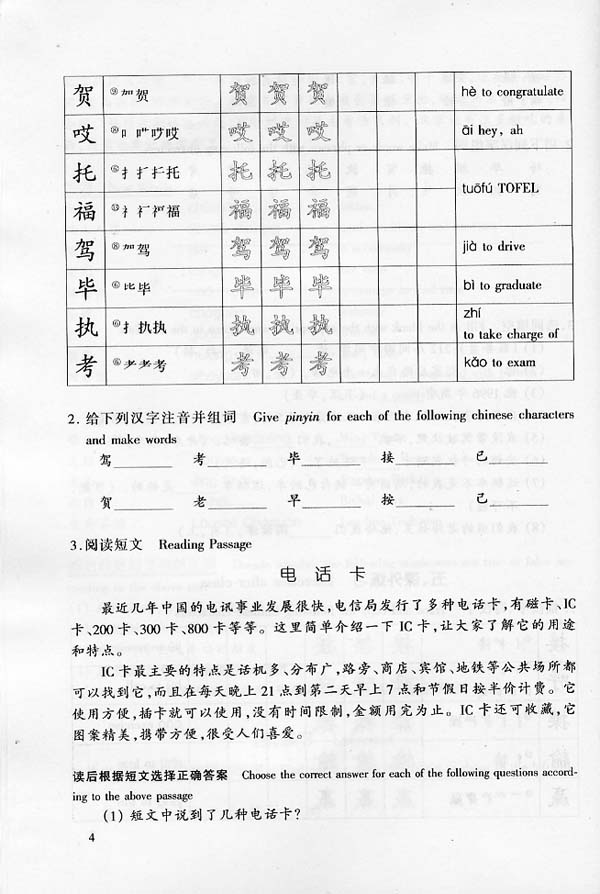 贺 ⑨ 加贺 贺 贺 贺 hè to congratulate
哎 叩叩艹哎哎 哎 哎 哎 āi hey, ah
托 扌扌托托 托 托 托 tuōfú TOFEL
福 礻礻礻福 福 福 福
驾 ⑧ 加驾 驾 驾 驾 jià to drive
毕 ⑥ 比毕 毕 毕 毕 bì to graduate
执 扌执执 执 执 执 zhí to take charge of
考 耂耂考 考 考 考 kǎo to exam
2. 给下列汉字注音并组词 Give pinyin for each of the following chinese characters
and make words
驾________ 考________ 毕________ 接________ 已________
贺________ 老________ 早________ 按________ 己________
3.阅读短文 Reading Passage
电 话 卡
最近几年中国的电讯事业发展很快,电信局发行了多种电话卡,有磁卡、IC
卡、200卡、300卡、800卡等等。这里简单介绍一下IC卡,让大家了解它的用途
和特点。
IC卡最主要的特点是话机多、分布广,路旁、商店、宾馆、地铁等公共场所都
可以找到它,而且在每天晚上21点到第二天早上7点和节假日按半价计费。它
使用方便,插卡就可以使用,没有时间限制,金额用完为止。IC卡还可收藏,它
图案精美,携带方便,很受人们喜爱。
读后根据短文选择正确答案 Choose the correct answer for each of the following questions accord-
ing to the above passage
(1) 短文中说到了几种电话卡?
4